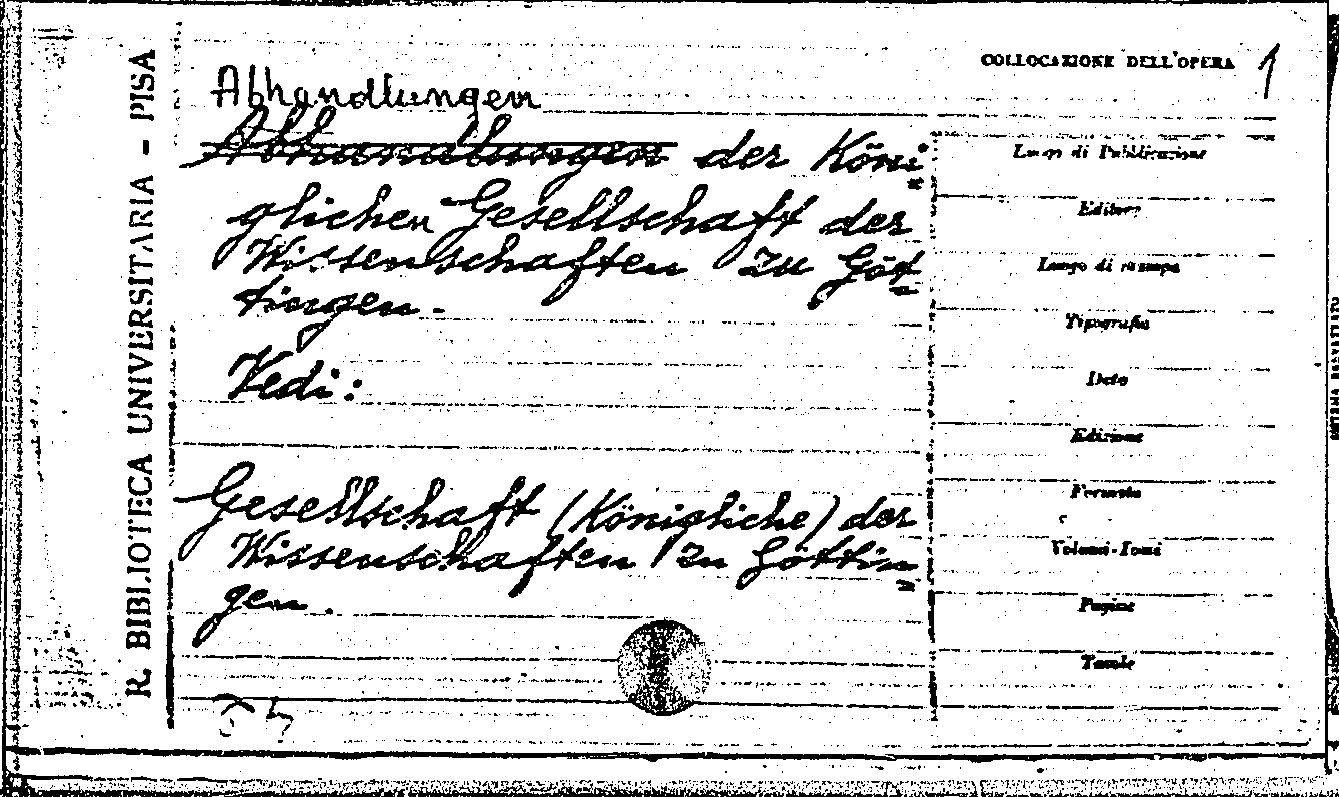 R. BIBLIOTECA UNIVERSITARIA - PISA
COLLOCAZIONE DELL'OPERA 1
Abhandlungen
Abhandlungen der Köni=
glichen Gesellschaft der
Wissenschaften zu Göt=
tingen.
Vedi:
Gesellschaft (Königliche) der
Wissenschaften zu Göttin=
gen.
Luogo di Pubblicazione
Editore
Luogo di stampa
Tipografia
Data
Edizione
Formato
Volumi-Tomi
Pagine
Tavole